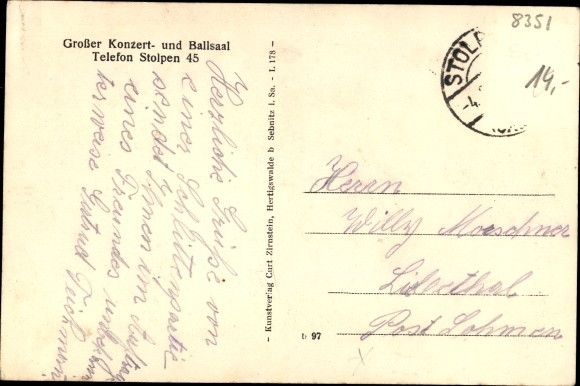 Großer Konzert- und Ballsaal
Telefon Stolpen 45
Herzliche Grüße von
einer Schlittenpartie
sendet Ihnen im Auftrag
eines Freundes
Gertrud
- Kunstverlag Curt Zirnstein, Hertigswalde b Sebnitz i. Sa. - L 178 -
8351
STOLP
14,-
Herrn
Willy Moeschner
Post Lohmen
b 97